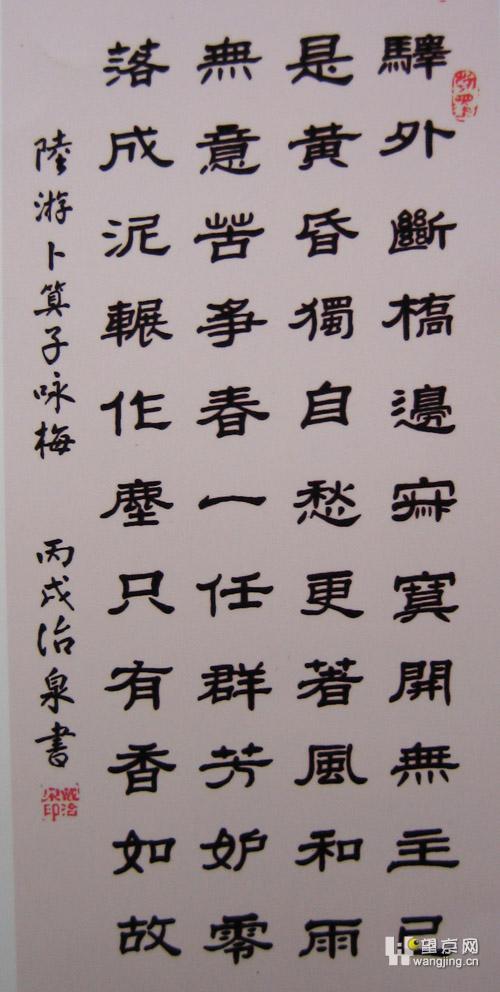 驛外斷橋邊寂寞開無主已
是黃昏獨自愁更著風和雨
無意苦爭春一任群芳妒零
落成泥輾作塵只有香如故
陸游卜算子咏梅 丙戌治泉書
望京网
wangjing.cn